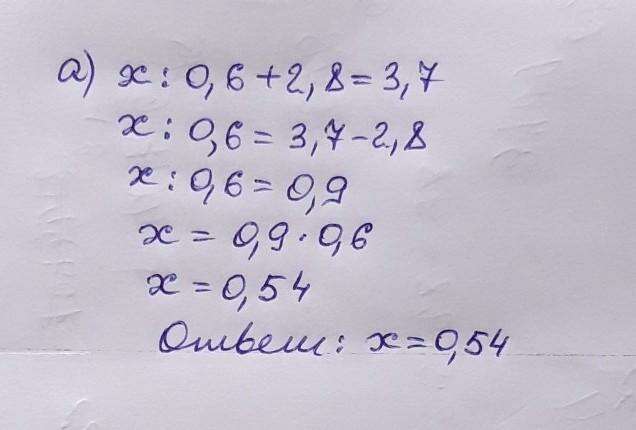 а) x : 0,6 + 2,8 = 3,7
x : 0,6 = 3,7 - 2,8
x : 0,6 = 0,9
x = 0,9 · 0,6
x = 0,54
Ответ: x = 0,54